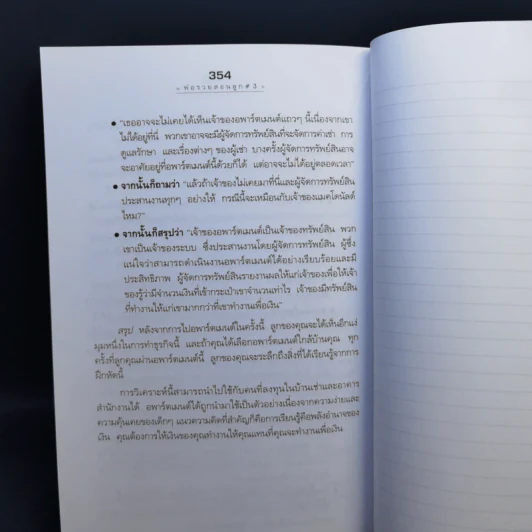 354
พ่อรวยสอนลูก # 3
• "เธออาจจะไม่เคยได้เห็นเจ้าของอพาร์ตเมนต์แถวๆ นี้เนื่องจากเขา
ไม่ได้อยู่ที่นี่ พวกเขาอาจจะมีผู้จัดการทรัพย์สินที่จะจัดการค่าเช่า การ
ดูแลรักษา และเรื่องต่างๆ ของผู้เช่า บางครั้งผู้จัดการทรัพย์สินอาจ
จะอาศัยอยู่ที่อพาร์ตเมนต์นี้ด้วยก็ได้ แต่อาจจะไม่ได้อยู่ตลอดเวลา"
• จากนั้นก็ถามว่า "แล้วถ้าเจ้าของไม่เคยมาที่นี่และผู้จัดการทรัพย์สิน
ประสานงานทุกๆ อย่างให้ กรณีนี้จะเหมือนกับเจ้าของแมคโดนัลด์
ไหม?"
• จากนั้นก็สรุปว่า "เจ้าของอพาร์ตเมนต์เป็นเจ้าของทรัพย์สิน พวก
เขาเป็นเจ้าของระบบ ซึ่งประสานงานโดยผู้จัดการทรัพย์สิน ผู้ซึ่ง
แน่ใจว่าสามารถดำเนินงานอพาร์ตเมนต์ได้อย่างเรียบร้อยและมี
ประสิทธิภาพ ผู้จัดการทรัพย์สินรายงานผลให้แก่เจ้าของเพื่อให้เจ้า
ของรู้ว่ามีจำนวนเงินที่เข้ากระเป๋าเขาจำนวนเท่าไร เจ้าของมีทรัพย์สิน
ที่ทำงานให้แก่เขามากกว่าที่เขาทำงานเพื่อเงิน"
สรุป หลังจากการไปอพาร์ตเมนต์ในครั้งนี้ ลูกของคุณจะได้เห็นอีกแง่
มุมหนึ่งในการทำธุรกิจนี้ และถ้าคุณได้เลือกอพาร์ตเมนต์ใกล้บ้านคุณ ทุก
ครั้งที่ลูกคุณผ่านอพาร์ตเมนต์นี้ ลูกของคุณจะระลึกถึงสิ่งที่ได้เรียนรู้จากการ
ฝึกหัดนี้
การวิเคราะห์นี้สามารถนำไปใช้กับคนที่ลงทุนในบ้านเช่าและอาคาร
สำนักงานได้ อพาร์ตเมนต์ได้ถูกนำมาใช้เป็นตัวอย่างเนื่องจากความง่ายและ
ความคุ้นเคยของเด็กๆ แนวความคิดที่สำคัญก็คือการเรียนรู้คือพลังอำนาจของ
เงิน คุณต้องการให้เงินของคุณทำงานให้คุณแทนที่คุณจะทำงานเพื่อเงิน